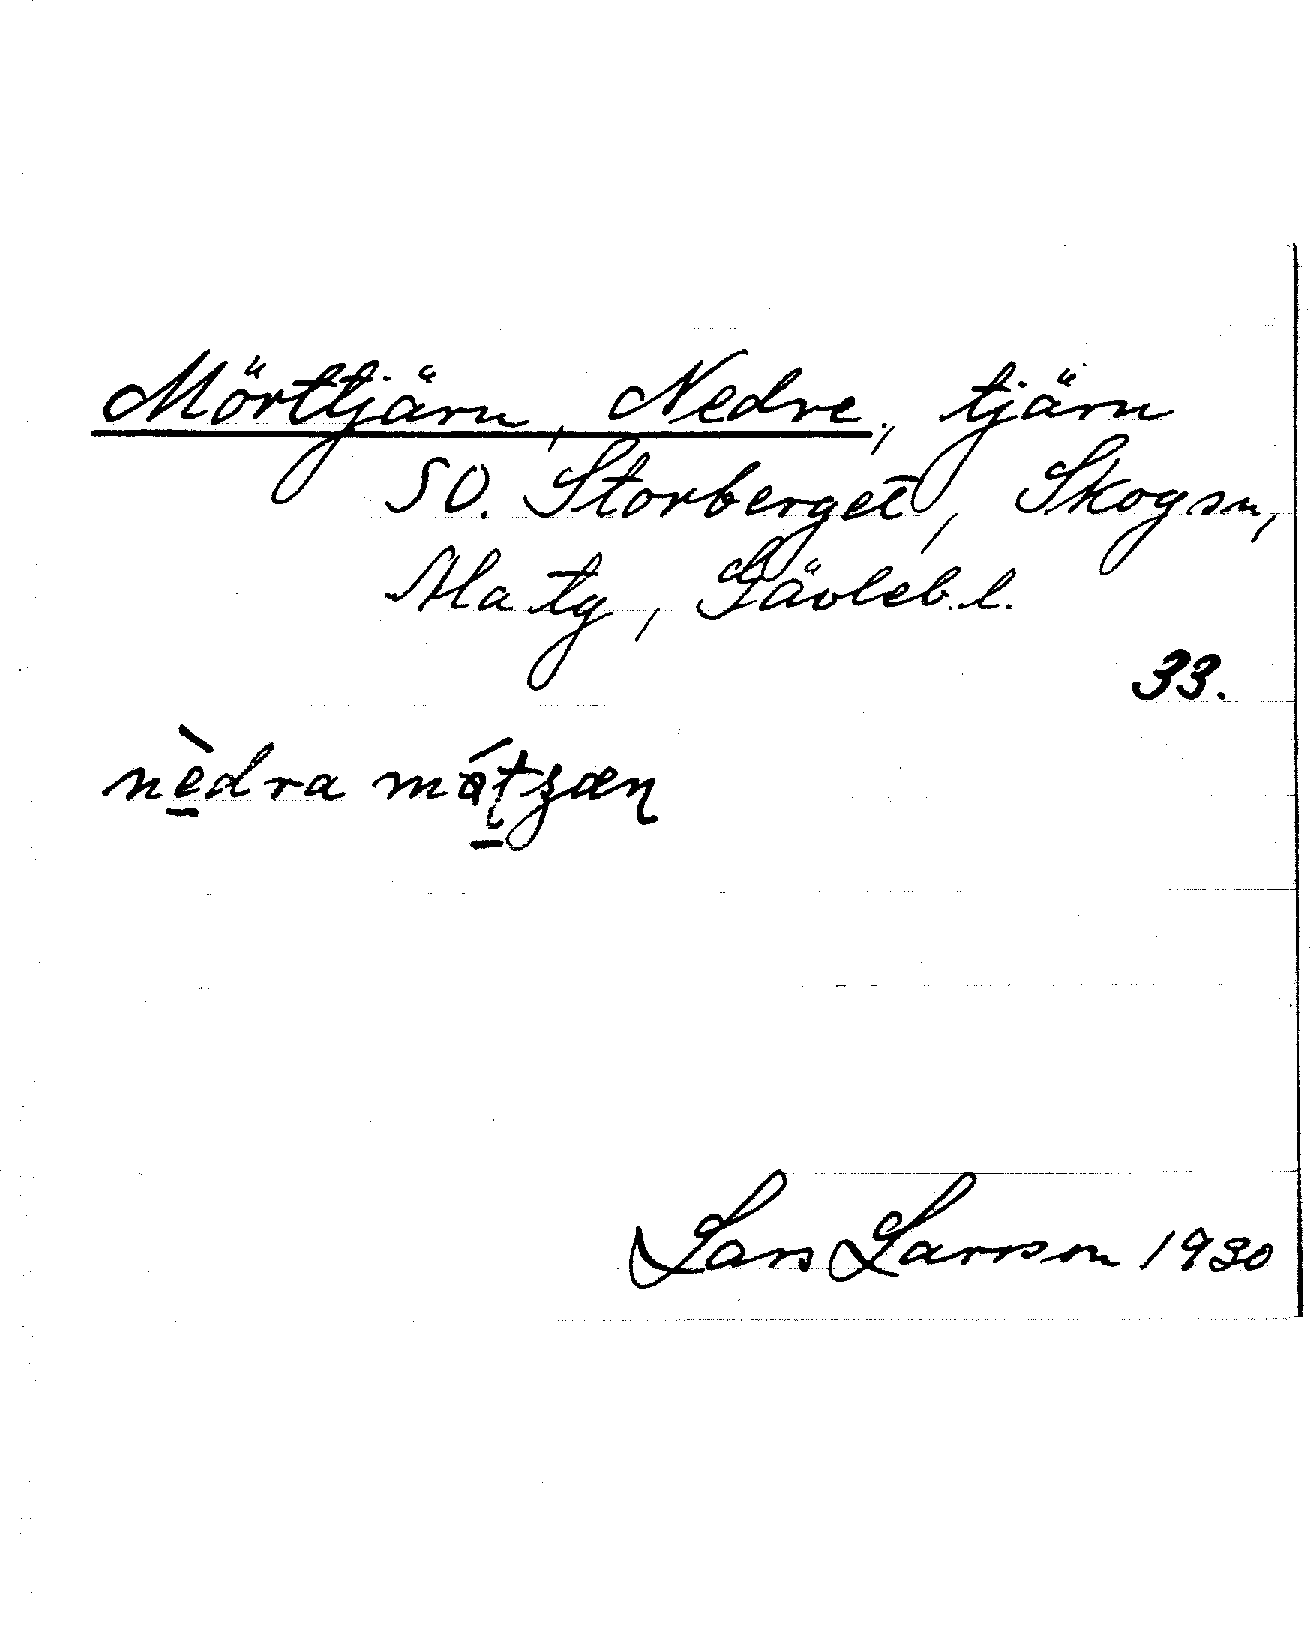 Mörttjärn, Nedre, tjärn
SO. Storberget, Skogsn,
Ala tg, Gävleb. l.
33.
nèdra
Lars Larsson 1930